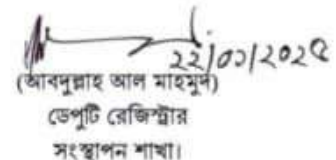 ২২/০১/২০২৫
(আবদুল্লাহ আল মাহমুদ)
ডেপুটি রেজিস্ট্রার
সংস্থাপন শাখা।